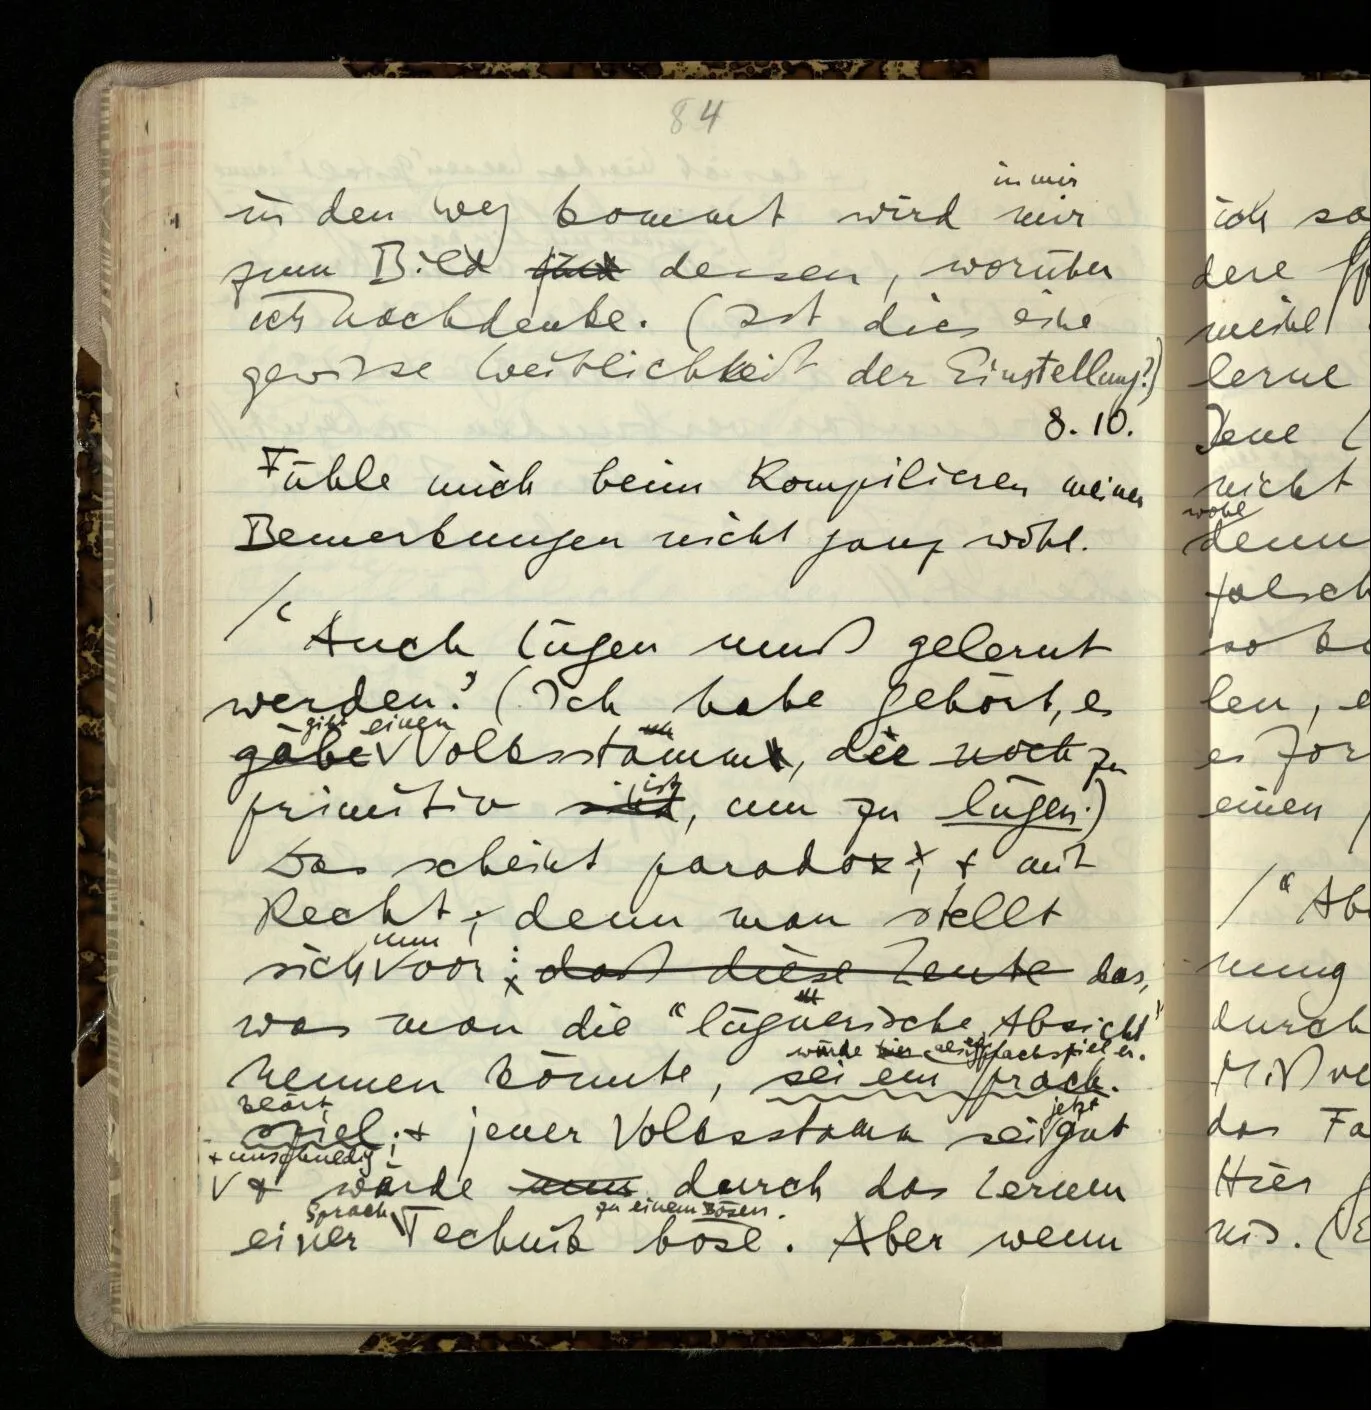 84
in mir
in den Weg kommt wird mir
zum Bild dessen, worüber
ich nachdenke. (Ist dies eine
gewisse Weiblichkeit der Einstellung?)
8.10.
Fühle mich beim Kompilieren meiner
Bemerkungen nicht ganz wohl.
/ ‘Auch lügen muß gelernt
werden.’ (Ich habe gehört, es
gibt einen
gäbe Volksstamm, die noch zu
ist
primitiv sind, um zu lügen.)
Das scheint paradox; & mit
Recht; denn man stellt
nun
sich vor: daß diese Leute das,
was man die “lügnerische Absicht”
würde hier als ein Sprachspiel er-
nennen könnte, sei ein Sprach-
klärt
spiel; & jener Volksstamm sei gut
jetzt
& unschuldig
& würde nun durch das Lernen
Sprach zu einem Bösen.
einer Technik böse. Aber wenn
ich
dere
lerne
Jene
nicht
wohl
denn
falsch
so
len,
es
einen
/ “
nung
durch
das
Hier
nis. (